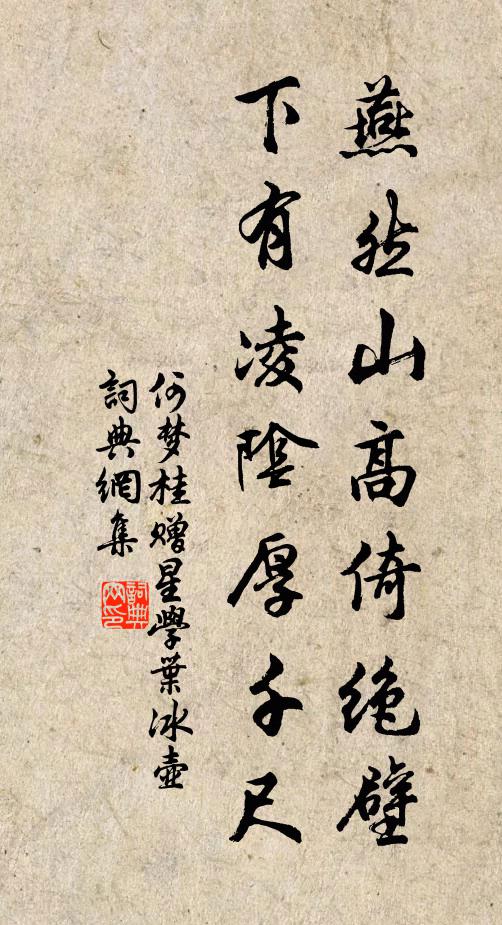 燕然山高倚絶壁
下有凌陰厚千尺
何梦桂赠星學葉冰壺
詞典網集
詞典
网印